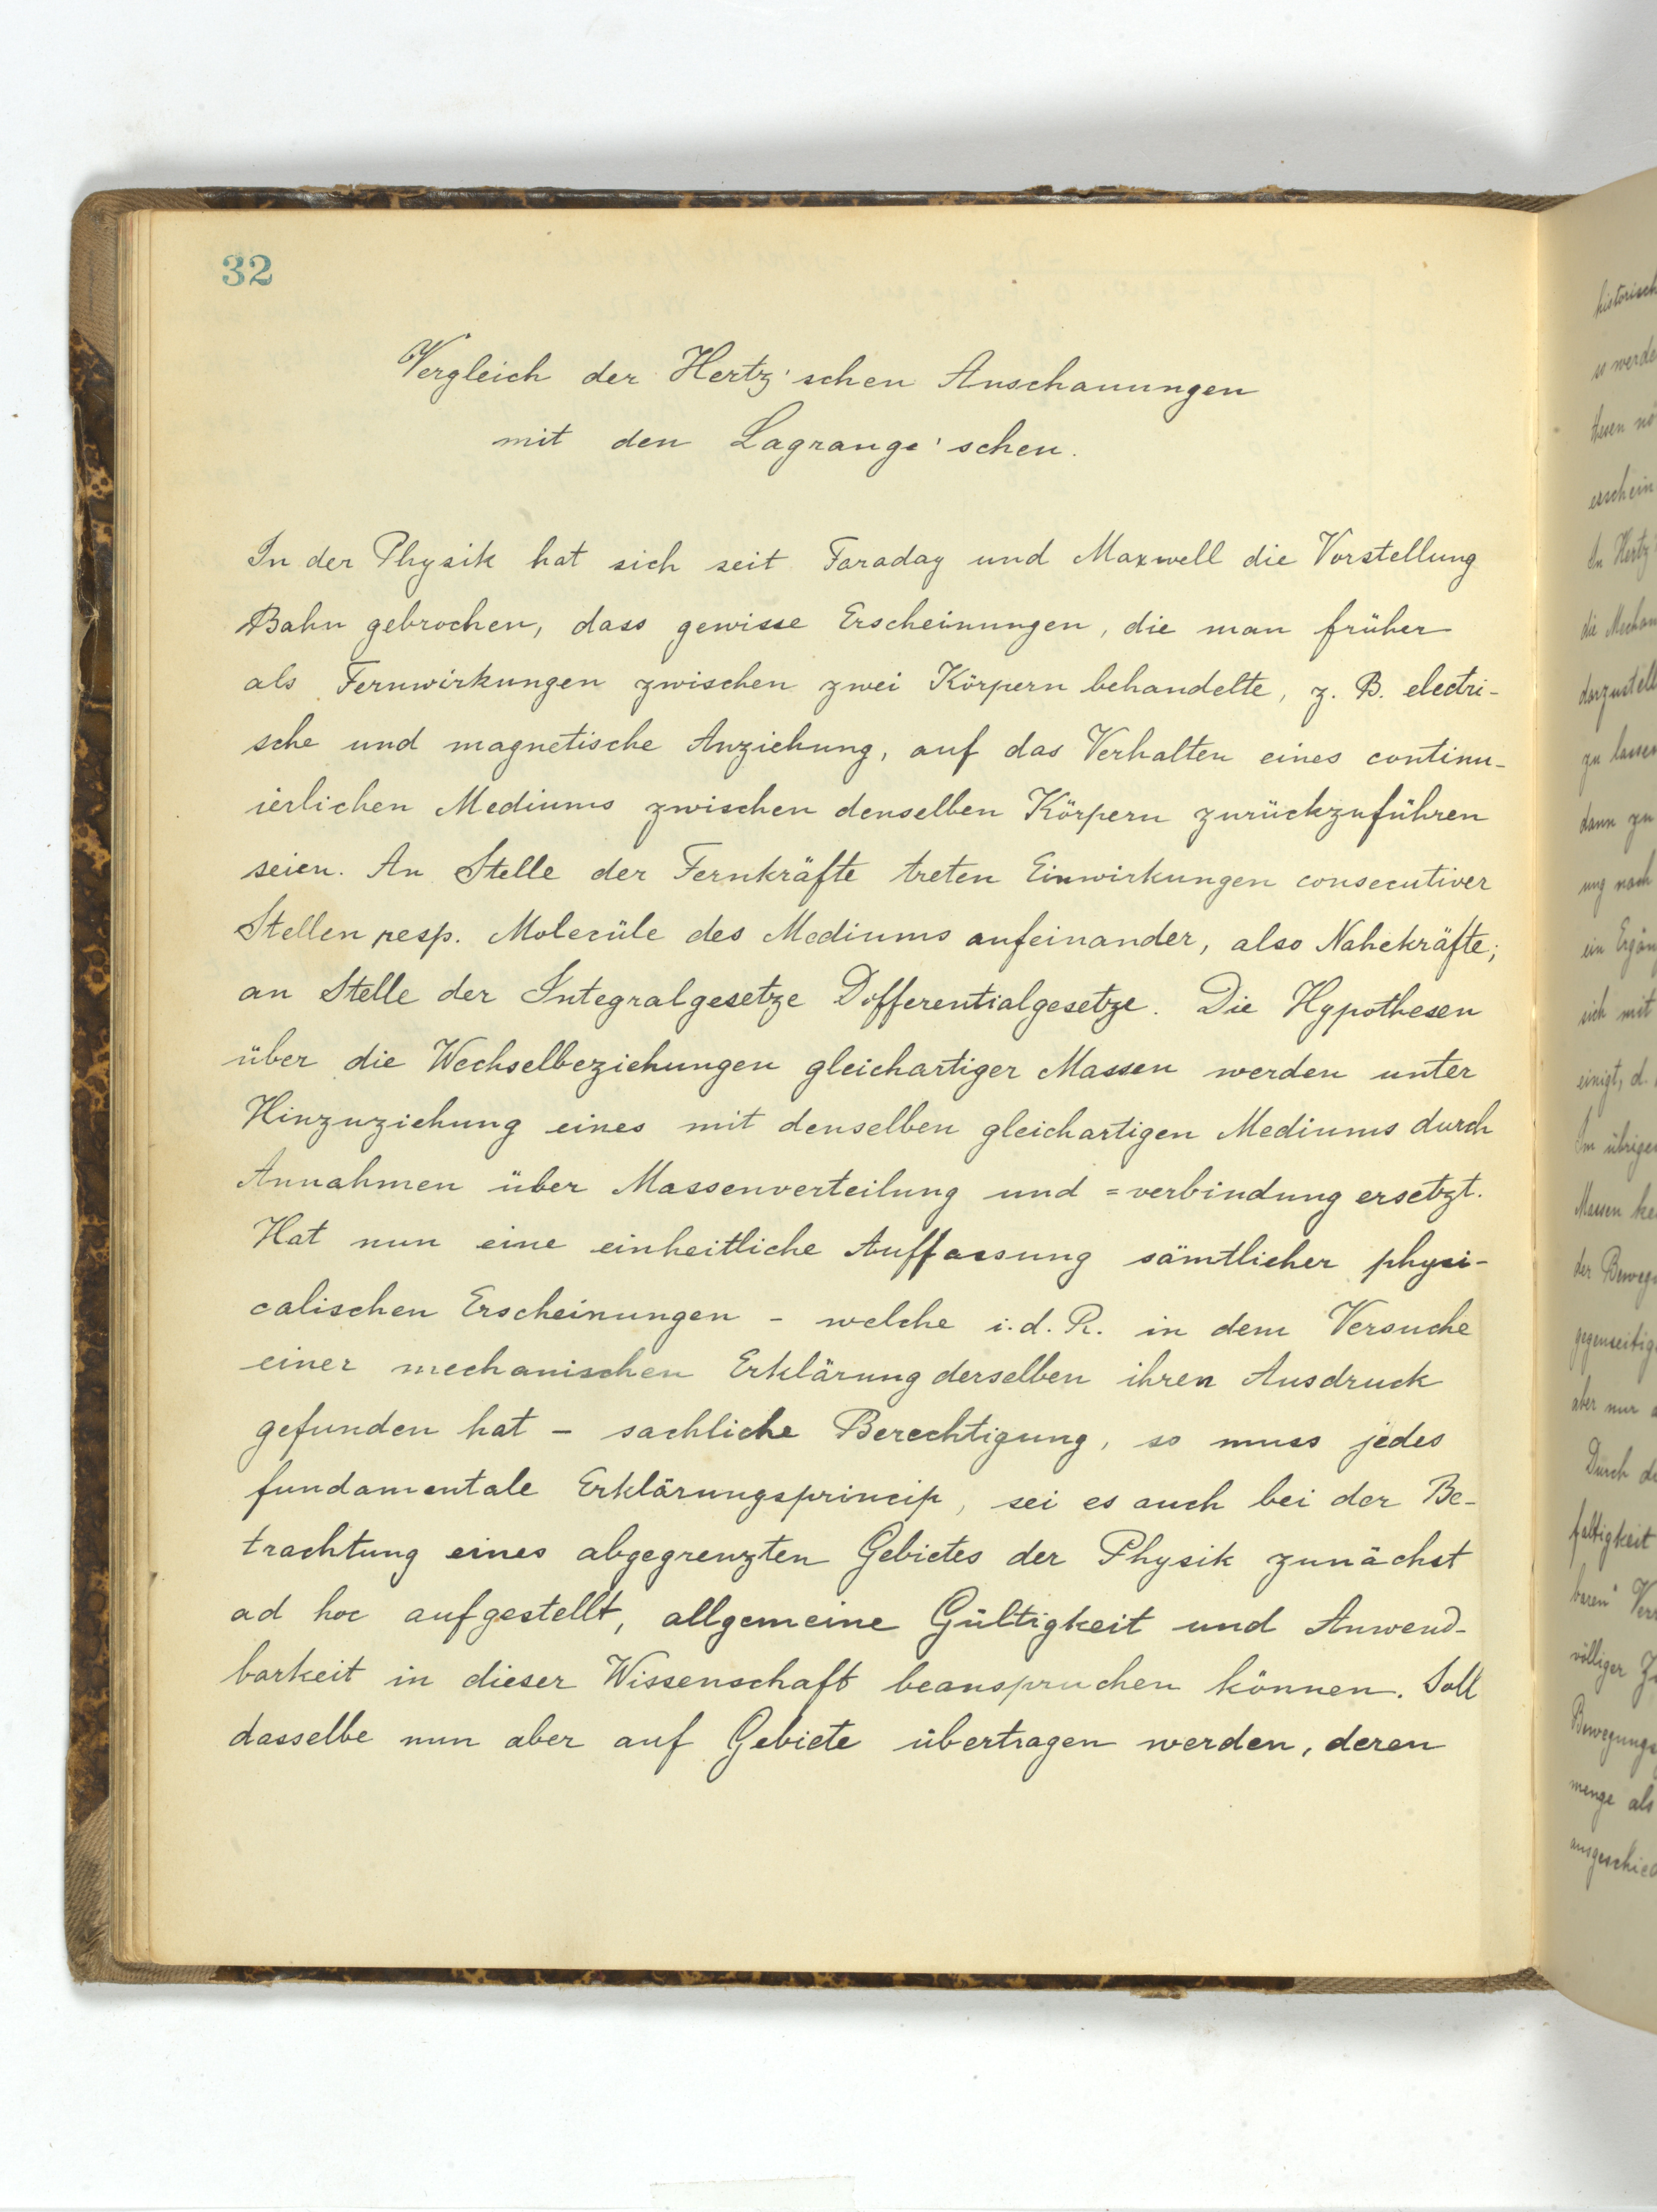 32
Vergleich der Hertz'schen Anschauungen
mit den Lagrange'schen.
In der Physik hat sich seit Faraday und Maxwell die Vorstellung
Bahn gebrochen, dass gewisse Erscheinungen, die man früher
als Fernwirkungen zwischen zwei Körpern behandelte, z. B. electri-
sche und magnetische Anziehung, auf das Verhalten eines continu-
ierlichen Mediums zwischen denselben Körpern zurückzuführen
seien. An Stelle der Fernkräfte treten Einwirkungen consecutiver
Stellen resp. Molecüle des Mediums aufeinander, also Nahekräfte;
an Stelle der Integralgesetze Differentialgesetze. Die Hypothesen
über die Wechselbeziehungen gleichartiger Massen werden unter
Hinzuziehung eines mit denselben gleichartigen Mediums durch
Annahmen über Massenverteilung und =verbindung ersetzt.
Hat nun eine einheitliche Auffassung sämtlicher physi-
calischen Erscheinungen - welche i.d.R. in dem Versuche
einer mechanischen Erklärung derselben ihren Ausdruck
gefunden hat - sachliche Berechtigung, so muss jedes
fundamentale Erklärungsprincip, sei es auch bei der Be-
trachtung eines abgegrenzten Gebietes der Physik zunächst
ad hoc aufgestellt, allgemeine Gültigkeit und Anwend-
barkeit in dieser Wissenschaft beanspruchen können. Soll
dasselbe nun aber auf Gebiete übertragen werden, deren
historisch
werde
erschein
In Hertz
die Mechan
darzustell
zu lassen
dann zu
ung nach
ein Ergän
sich mit
einigt, d.
Im übrige
Massen ke
der Beweg
gegenseitig
aber nur
Durch d
faltigkeit
baren" Ver
völliger Z
Bewegungs
menge als
ausgeschied